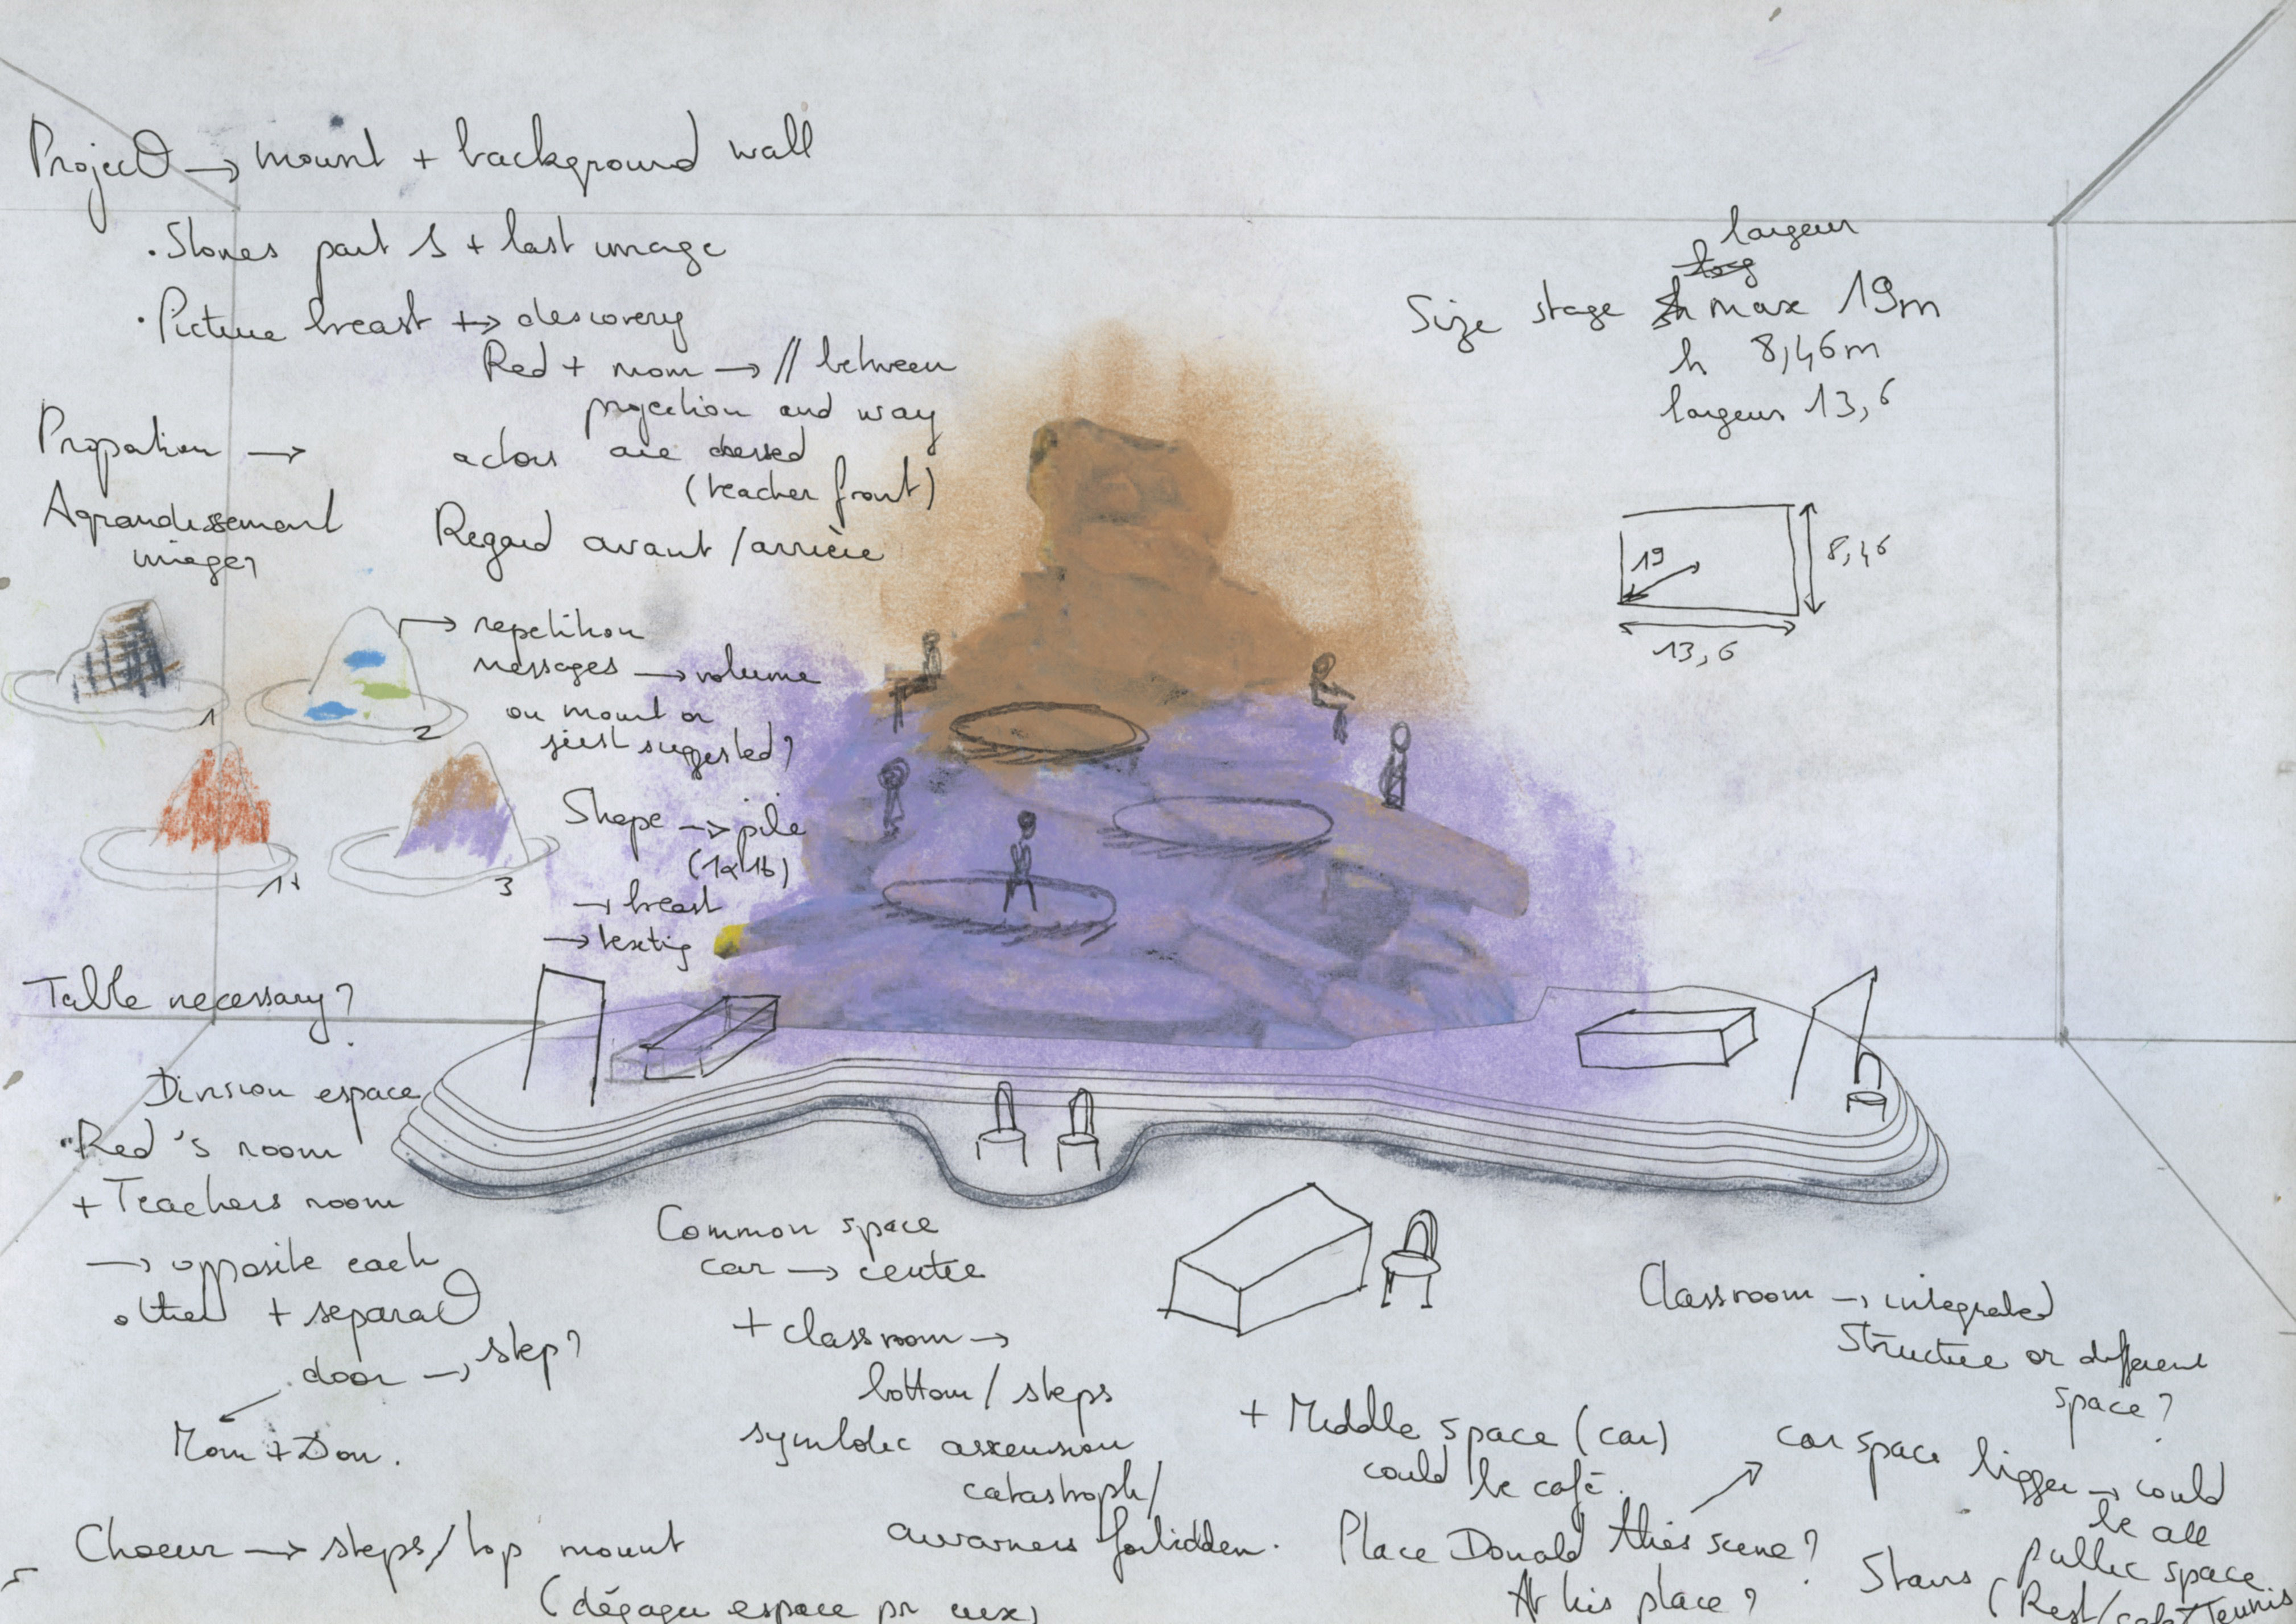 Project → mount + background wall
· Stones part 1 + last image
· Picture breast ↔ descovery
Red + mom → // between
projection and way
actors are
(teacher front)
Propotion →
Agrandissement
images
Regard avant / arrière
repetition
messages → volume
on mount or
just suggested?
1
2
1+
3
Shape → pile
→ breast
Table necessary?
Division espace
Red's room
+ Teachers room
→ opposite each
other + separat
door → step?
Mom + Don.
Common space
car → centre
+ classroom →
bottom / steps
symbolic ascension
catastroph /
awarness forbidden.
Choeur → steps / top mount
(dégager espace pr eux)
largeur
long
Size stage max 19m
h 8,46m
largeur 13,6
19
8,46
13,6
Classroom → integrated
Structure or different
space?
+ Middle space (car)
could be café.
Place Donald this scene?
At his place?
car space bigger → could
be all
public space
Stairs (Rest/café/Tennis